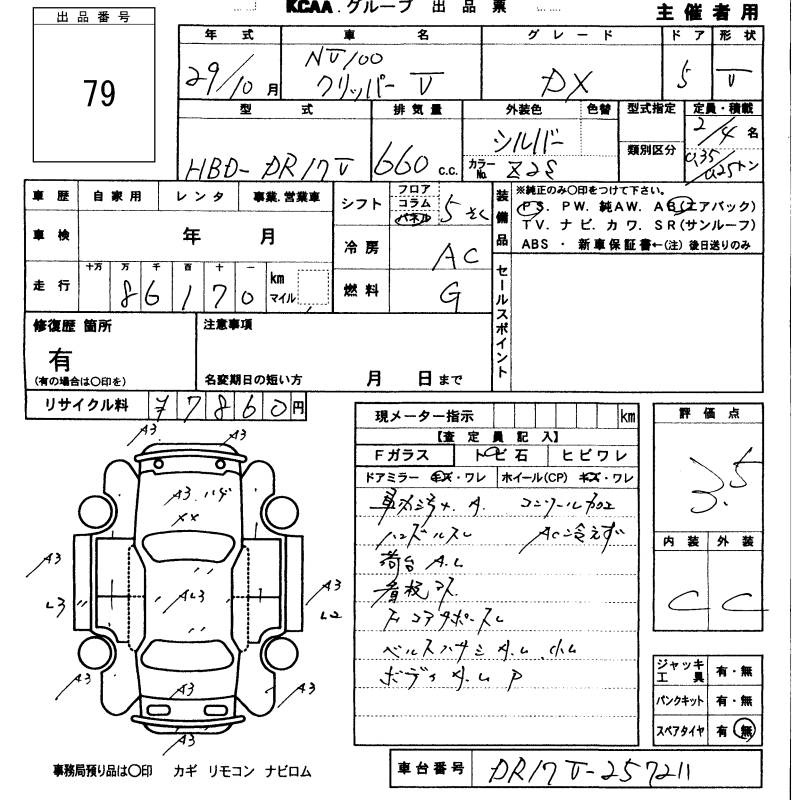 KCAA.グループ 出品票
主催者用
出品番号
79
年式 車名 グレード ドア 形状
29/10月 NV100 クリッパー V DX 5 V
型式 排気量 外装色 色替 型式指定 定員・積載
類別区分
HBD-DR17V 660 c.c. シルバー カラーNo. Z2S 2/4名 0.35/0.25トン
車歴 自家用 レンタ 事業.営業車
車検 年 月
走行 十万 万 千 百 十 一 km マイル
86170
シフト フロア コラム パネル 5そく
冷房 AC
燃料 G
装備品
※純正のみ〇印をつけて下さい。
PS. PW. 純AW. AB(エアバック)
TV. ナビ. カワ. SR(サンルーフ)
ABS ・ 新車保証書←(注)後日送りのみ
セールスポイント
修復歴 箇所
有
(有の場合は〇印を)
注意事項
名変期日の短い方 月 日まで
リサイクル料 77860円
現メーター指示 km
【査定員記入】
Fガラス トビ石 ヒビワレ
ドアミラー キズ・ワレ ホイール(CP) キズ・ワレ
ハンドルスレ AC冷えず
荷台 A.L
評価点
3.5
内装 外装
C C
ジャッキ工具 有・無
パンクキット 有・無
スペアタイヤ 有・無
A3 A3
A3.ハゲ
A3
L3
AL3
A3
L2
A3
A3
A3
A3
事務局預り品は〇印 カギ リモコン ナビロム
車台番号 DR17V-257211